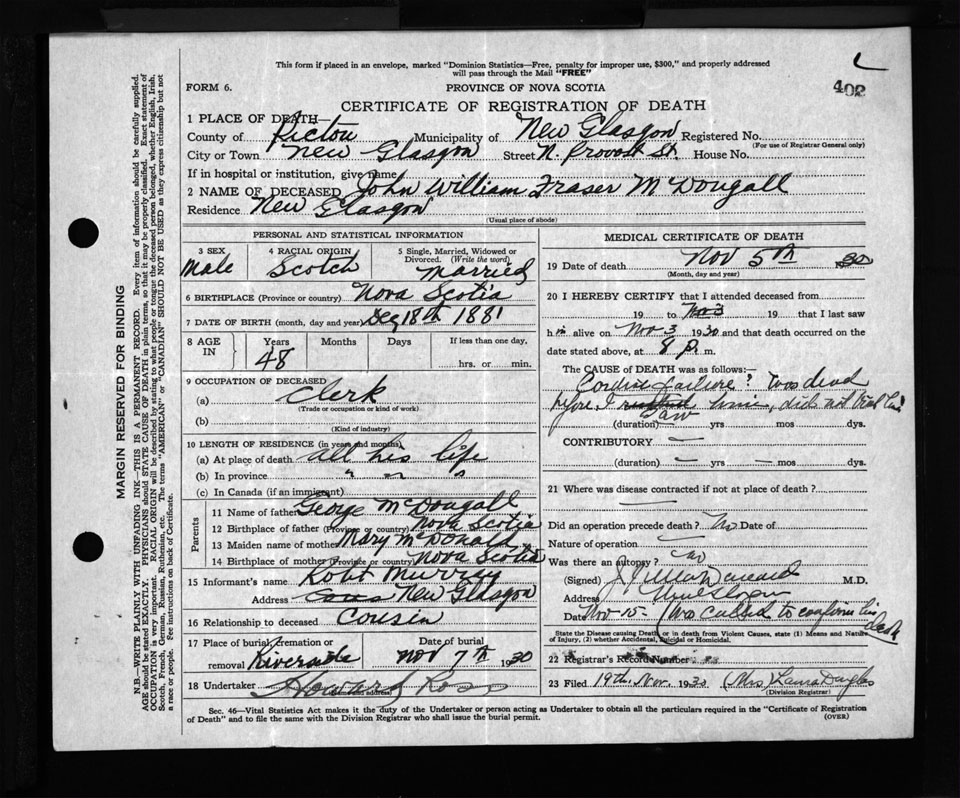 This form if placed in an envelope, marked "Dominion Statistics—Free, penalty for improper use, $300," and properly addressed
will pass through the Mail "FREE"
402
FORM 6.
PROVINCE OF NOVA SCOTIA
CERTIFICATE OF REGISTRATION OF DEATH
1 PLACE OF DEATH—
County of Pictou Municipality of New Glasgow Registered No.
(For use of Registrar General only)
City or Town New Glasgow Street N. Provost St. House No.
If in hospital or institution, give name
2 NAME OF DECEASED John William Fraser McDougall
Residence New Glasgow
(Usual place of abode)
PERSONAL AND STATISTICAL INFORMATION
3 SEX Male
4 RACIAL ORIGIN Scotch
5 Single, Married, Widowed or Divorced. (Write the word) Married
6 BIRTHPLACE (Province or country) Nova Scotia
7 DATE OF BIRTH (month, day and year) Dec 18th 1881
8 AGE IN Years 48 Months Days If less than one day, hrs. or min.
9 OCCUPATION OF DECEASED
(a) Clerk
(Trade or occupation or kind of work)
(b)
(Kind of industry)
10 LENGTH OF RESIDENCE (in years and months)
(a) At place of death all his life
(b) In province " " "
(c) In Canada (if an immigrant)
Parents
11 Name of father George McDougall
12 Birthplace of father (Province or country) Nova Scotia
13 Maiden name of mother Mary McDonald
14 Birthplace of mother (Province or country) Nova Scotia
15 Informant's name Robt Murray
Address New Glasgow
16 Relationship to deceased Cousin
17 Place of burial, cremation or removal Riverside
Date of burial Nov 7th 1930
18 Undertaker Howard Ross
MEDICAL CERTIFICATE OF DEATH
19 Date of death Nov 5th 30
(Month, day and year)
20 I HEREBY CERTIFY that I attended deceased from
19 to Nov 3 19 that I last saw
h im alive on Nov 3 1930 and that death occurred on the
date stated above, at 8 p. m.
The CAUSE OF DEATH was as follows:—
Cardiac failure? Was dead
before I saw him, did not view him
(duration) yrs mos dys.
CONTRIBUTORY —
(duration) — yrs — mos dys.
21 Where was disease contracted if not at place of death?
Did an operation precede death? No Date of
Nature of operation —
Was there an autopsy? No
(Signed) M.D.
Address New Glasgow
Date Nov 15 (Was called to confirm his death
State the Disease causing Death, or in death from Violent Causes, state (1) Means and Nature
of Injury, (2) whether Accidental, Suicidal or Homicidal.
22 Registrar's Record Number
23 Filed 19th. Nov. 1930 (Mrs) Laura Douglas
(Division Registrar)
Sec. 46—Vital Statistics Act makes it the duty of the Undertaker or person acting as Undertaker to obtain all the particulars required in the "Certificate of Registration
of Death" and to file the same with the Division Registrar who shall issue the burial permit.
(OVER)
MARGIN RESERVED FOR BINDING
N.B.—WRITE PLAINLY WITH UNFADING INK—THIS IS A PERMANENT RECORD. Every item of information should be carefully supplied.
AGE should be stated EXACTLY. PHYSICIANS should STATE CAUSE OF DEATH in plain terms, so that it may be properly classified. Exact statement of
OCCUPATION is very important. RACIAL ORIGIN will be described by stating to what people or tongue the deceased person belonged, whether English, Irish,
Scotch, French, German, Russian, Ruthenian, etc. The terms "AMERICAN" or "CANADIAN" SHOULD NOT BE USED as they express citizenship but not
a race or people. See instructions on back of Certificate.